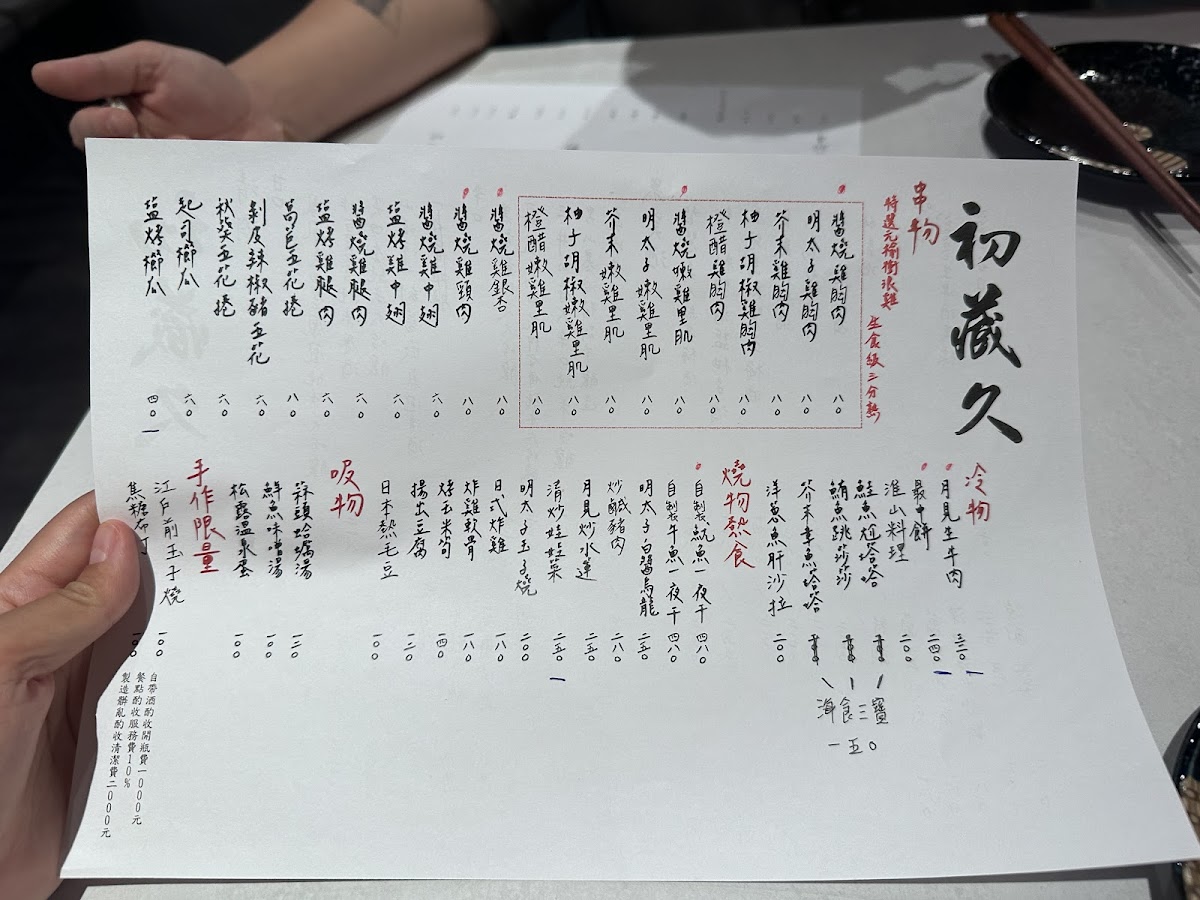 初藏久
串物
特選元榆衝浪雞 生食級三分熟
醬燒雞胸肉 八〇
明太子雞胸肉 八〇
芥末雞胸肉 八〇
柚子胡椒雞胸肉 八〇
橙醋雞胸肉 八〇
醬燒嫩雞里肌 八〇
明太子嫩雞里肌 八〇
芥末嫩雞里肌 八〇
柚子胡椒嫩雞里肌 八〇
橙醋嫩雞里肌 八〇
醬燒雞銀杏 八〇
醬燒雞頸肉 八〇
醬燒雞中翅 六〇
鹽烤雞中翅 六〇
醬燒雞腿肉 六〇
鹽烤雞腿肉 六〇
萵苣五花捲 八〇
剝皮辣椒豬五花 六〇
秋葵五花捲 六〇
起司櫛瓜 六〇
鹽烤櫛瓜 四〇
冷物
月見生牛肉 三三〇
最中餅 二四〇
淮山料理 二〇〇
鮭魚尬塔塔
鮪魚跳莎莎
芥末章魚塔塔
海食三寶
一五〇
洋蔥魚肝沙拉 二〇〇
燒物熱食
自製魷魚一夜干 四八〇
自製午魚一夜干 四八〇
明太子白醬烏龍 二五〇
炒鹹豬肉 二八〇
月見炒水蓮 二五〇
清炒娃娃菜 二五〇
明太子玉子燒 二〇〇
日式炸雞 一八〇
炸雞軟骨 一八〇
烤玉米筍 一四〇
揚出豆腐 一二〇
日本熱毛豆 一〇〇
吸物
蒜頭蛤蠣湯 一二〇
鮮魚味噌湯 一〇〇
松露溫泉蛋 一〇〇
手作限量
江戶前玉子燒 一〇〇
焦糖布丁 一〇〇
自帶酒酌收開瓶費一000元
餐點酌收服務費10%
製造髒亂酌收清潔費二000元